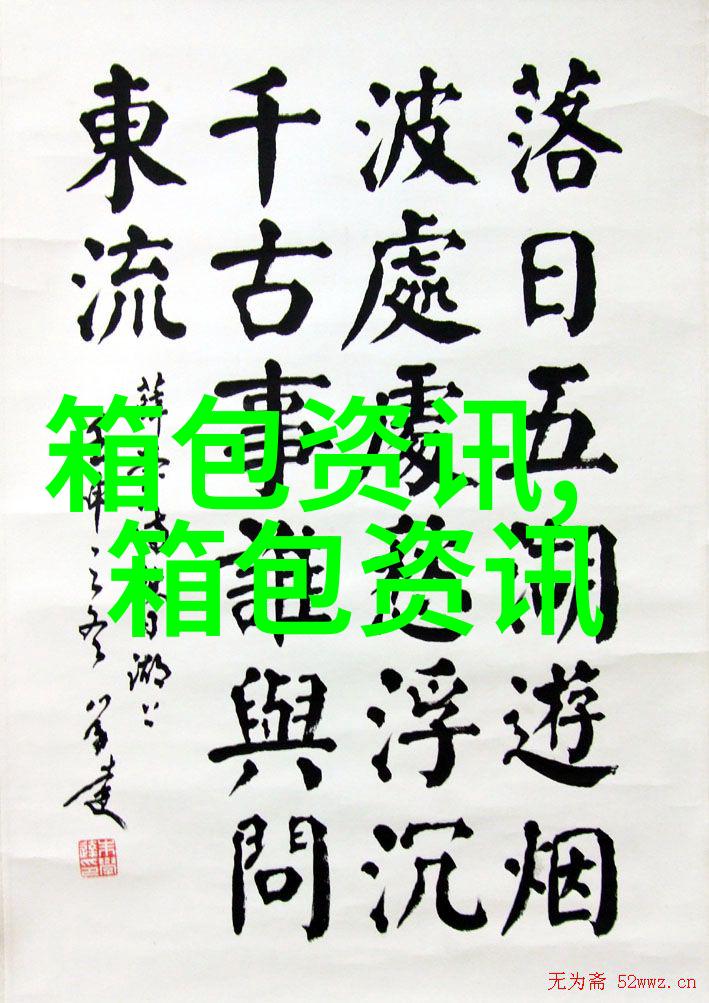 落日五湖遊烟
波處處愁浮沉
千古事誰與問
東流
薛 日湖上
申之冬
箱包资讯,
箱包资讯
无为斋 52wwz.cn